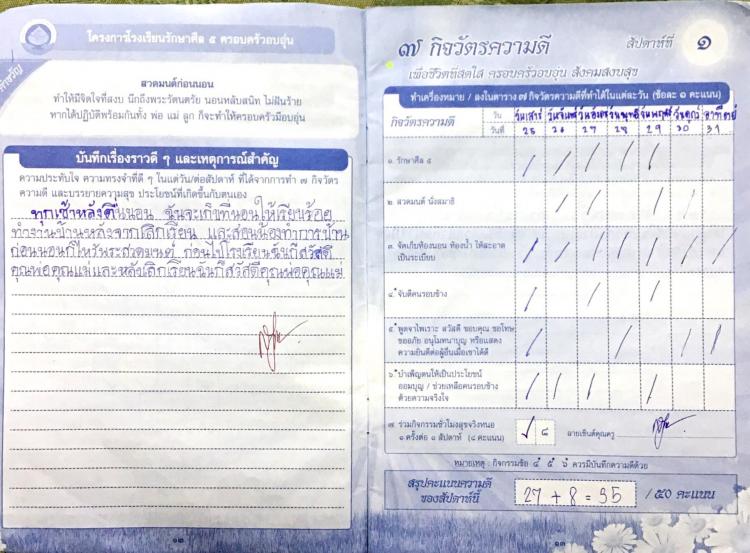 โครงการโรงเรียนรักษาศีล ๕ ครอบครัวอบอุ่น
สวดมนต์ก่อนนอน
ทำให้มีจิตใจที่สงบ นึกถึงพระรัตนตรัย นอนหลับสนิท ไม่ฝันร้าย
หากได้ปฏิบัติพร้อมกันทั้ง พ่อ แม่ ลูก ก็จะทำให้ครอบครัวมีอบอุ่น
บันทึกเรื่องราวดี ๆ และเหตุการณ์สำคัญ
ความประทับใจ ความทรงจำที่ดี ๆ ในแต่วัน/ต่อสัปดาห์ ที่ได้จากการทำ ๗ กิจวัตร
ความดี และบรรยายความสุข ประโยชน์ที่เกิดขึ้นกับตนเอง
ทุกเช้าหลังตื่นนอน ฉันจะเก็บที่นอนให้เรียบร้อย
ทำงานบ้านหลังจากเลิกเรียน และสอนน้องทำการบ้าน
ก่อนนอนก็ไหว้พระสวดมนต์ ก่อนไปโรงเรียนฉันก็สวัสดี
คุณพ่อคุณแม่และหลังเลิกเรียนฉันก็สวัสดีคุณพ่อคุณแม่
๑๒
๗ กิจวัตรความดี
สัปดาห์ที่ ๑
เพื่อชีวิตที่สดใส ครอบครัวอบอุ่น สังคมสงบสุข
ทำเครื่องหมาย / ลงในตาราง ๗ กิจวัตรความดีที่ทำได้ในแต่ละวัน (ข้อละ ๑ คะแนน)
กิจวัตรความดี วัน วันเสาร์ วันจันทร์ วันอังคาร วันพุทธ วันพฤหัส วันศุกร์ อาทิตย์
วันที่ 25 26 27 28 29 30 31
๑. รักษาศีล ๕ / / / / /
๒. สวดมนต์ นั่งสมาธิ / / / /
๓. จัดเก็บห้องนอน ห้องน้ำ ให้สะอาด
เป็นระเบียบ / / / / / / /
๔. จับดีคนรอบข้าง / / /
๕. พูดจาไพเราะ สวัสดี ขอบคุณ ขอโทษ
ขออภัย อนุโมทนาบุญ หรือแสดง
ความยินดีต่อผู้อื่นเมื่อเขาได้ดี / / / /
๖. บำเพ็ญตนให้เป็นประโยชน์
ออมบุญ / ช่วยเหลือคนรอบข้าง
ด้วยความจริงใจ / / / /
๗. ร่วมกิจกรรมชั่วโมงสุขจริงหนอ
๑ ครั้งต่อ ๑ สัปดาห์ (๘ คะแนน) ✓ ๘ ลายเซ็นต์คุณครู
หมายเหตุ : กิจกรรมข้อ ๔ ๕ ๖ ควรมีบันทึกความดีด้วย
สรุปคะแนนความดี
ของสัปดาห์นี้ 27 + 8 = 35 / ๕๐ คะแนน
๑๓